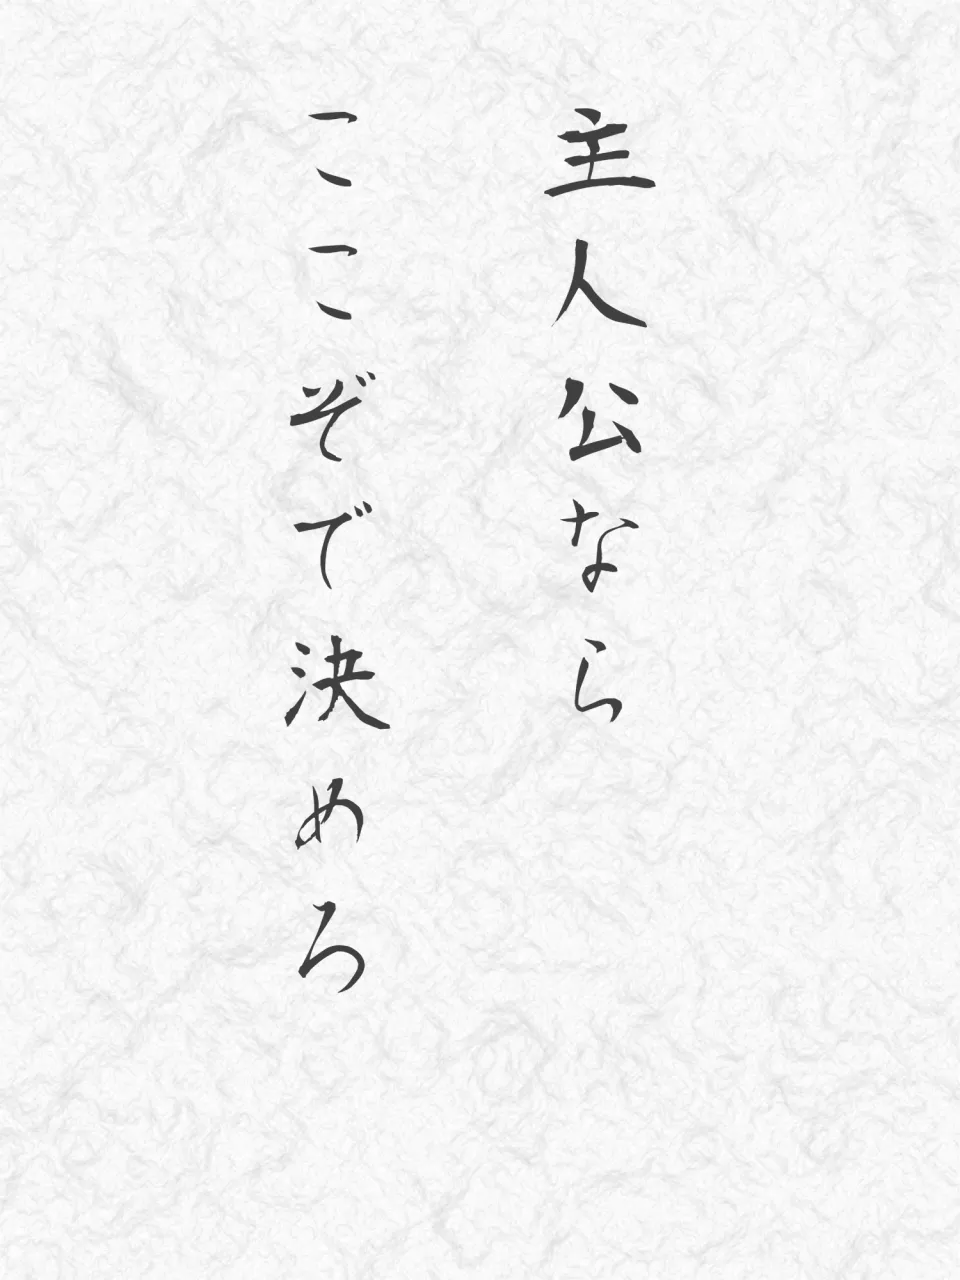 主人公なら
ここぞで決めろ